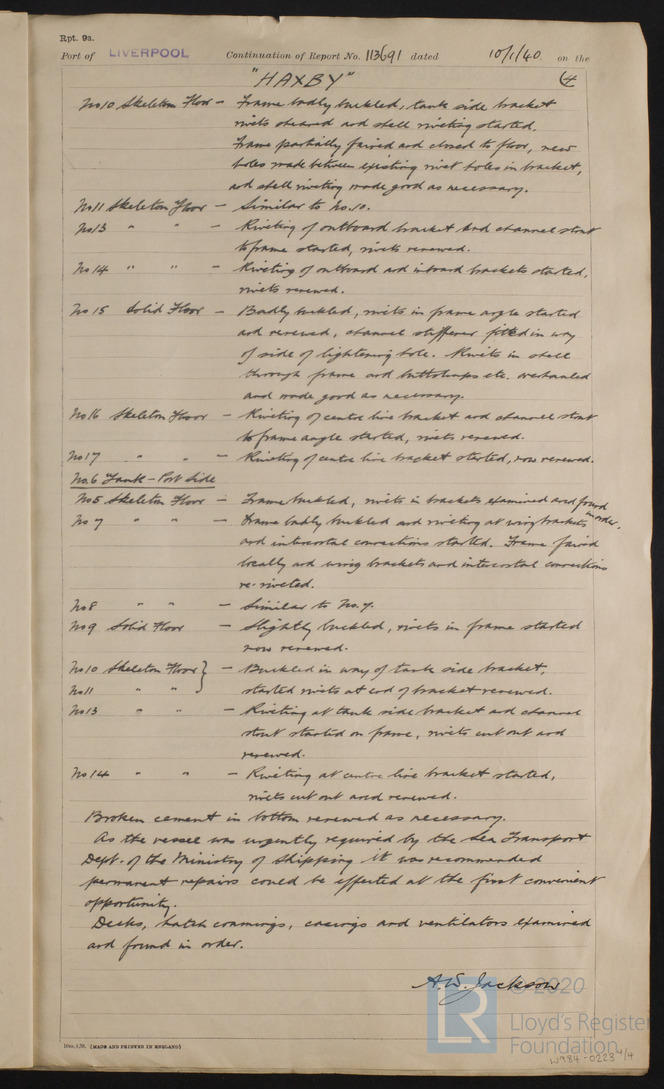 Rpt. 9a.
Port of LIVERPOOL Continuation of Report No. 113691 dated 10/1/40 on the
"HAXBY" 4
No 10 Skeleton Floor - Frame badly buckled, tank side bracket
rivets sheared and shell riveting started.
Frame partially faired and closed to floor, new
holes made between existing rivet holes in bracket,
and shell riveting made good as necessary.
No 11 Skeleton Floor - Similar to No. 10.
No 13 " " - Riveting of outboard bracket and channel strut
to frame started, rivets renewed.
No 14 " " - Riveting of outboard and inboard brackets started,
rivets renewed.
No 15 Solid Floor - Badly buckled, rivets in frame angle started
and renewed, channel stiffener fitted in way
of side of lightening hole. Rivets in shell
through frame and buttstraps etc. overhauled
and made good as necessary.
No 16 Skeleton Floor - Riveting of centre line bracket and channel strut
to frame angle started, rivets renewed.
No 17 " " - Riveting of centre line bracket started, now renewed.
No. 6 Tank - Port Side
No 5 Skeleton Floor - Frame buckled, rivets in brackets examined and found
in order.
No 7 " " - Frame badly buckled and riveting at wing brackets
and intercostal connections started. Frame faired
locally and wing brackets and intercostal connections
re-riveted.
No 8 " " - Similar to No. 7.
No 9 Solid Floor - Slightly buckled, rivets in frame started
now renewed.
No 10 Skeleton Floor } - Buckled in way of tank side bracket,
No 11 " " } started rivets at end of bracket renewed.
No 13 " " - Riveting at tank side bracket and channel
strut started on frame, rivets cut out and
renewed.
No 14 " " - Riveting at centre line bracket started,
rivets cut out and renewed.
Broken cement in bottom renewed as necessary.
As the vessel was urgently required by the Sea Transport
Dept. of the Ministry of Shipping it was recommended
permanent repairs could be effected at the first convenient
opportunity.
Decks, hatch coamings, casings and ventilators examined
and found in order.
A. W. Jackson
© 2020
LR
Lloyd's Register
Foundation
W984-0223 4/4
(MADE AND PRINTED IN ENGLAND)